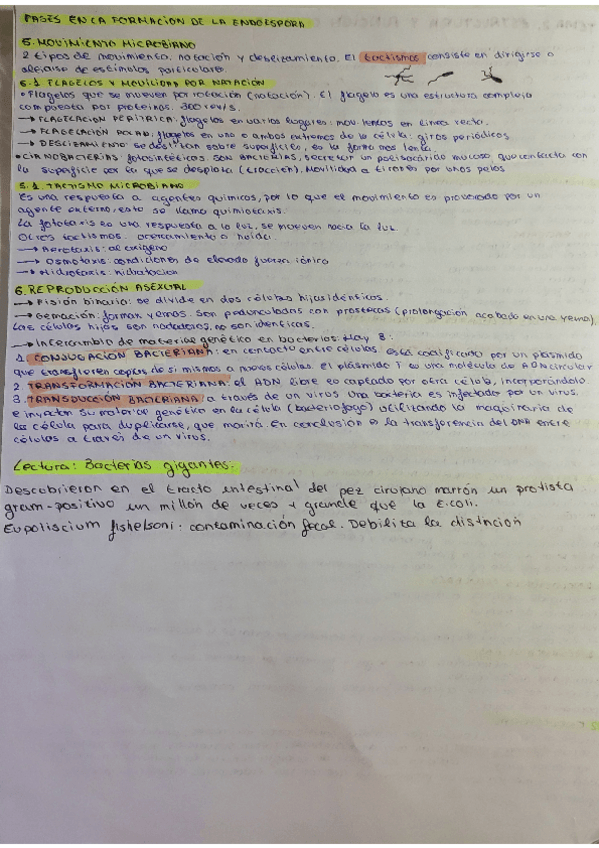 FASES EN LA FORMACIÓN DE LA ENDOESPORA
5. MOVIMIENTO MICROBIANO
2 tipos de movimiento: natación y deslizamiento. El tactismo consiste en dirigirse o
alejarse de estímulos particulares.
5.1 FLAGELOS Y MOVILIDAD POR NATACIÓN
• Flagelos que se mueven por rotación (natación). El flagelo es una estructura compleja
compuesta por proteínas. 300 rev/s.
→ FLAGELACIÓN PERÍTRICA: flagelos en varios lugares: mov. lentos en línea recta.
→ FLAGELACIÓN POLAR: flagelos en uno o ambos extremos de la célula: giros periódicos.
→ DESLIZAMIENTO: se deslizan sobre superficies, es la forma más lenta.
• CIANOBACTERIAS: fotosintéticos. SON BACTERIAS, secretan un polisacárido mucoso que contacta con
la superficie por la que se desplaza (tracción). Movilidad a tirones por unos pelos
5.1. TACTISMO MICROBIANO
Es una respuesta a agentes químicos, por lo que el movimiento es provocado por un
agente externo, esto se llama quimiotaxis.
La fototaxis es una respuesta a la luz, se mueven hacia la luz.
Otros tactismos: acercamiento o huida:
→ Aerotaxis: al oxígeno
→ Osmotaxis: condiciones de elevada fuerza iónica
→ Hidrotaxis: hidratación
6. REPRODUCCIÓN ASEXUAL
→ Fisión binaria: se divide en dos células hijas idénticas.
→ Gemación: forman yemas. Son pedunculadas con prostecas (prolongación acabado en una yema).
Las células hijas son nadadoras, no son idénticas.
→ Intercambio de material genético en bacterias: Hay 3:
1. CONJUGACIÓN BACTERIANA: en contacto entre células. está codificado por un plásmido
que transfieren copias de sí mismos a nuevas células. El plásmido T es una molécula de ADN circular
2. TRANSFORMACIÓN BACTERIANA: el ADN libre es captado por otra célula, incorporándolo.
3. TRANSDUCCIÓN BACTERIANA: a través de un virus. Una bacteria es infectada por un virus
e inyectan su material genético en la célula (bacteriófago) utilizando la maquinaria de
la célula para duplicarse, que morirá. En conclusión es la transferencia del ADN entre
células a través de un virus.
Lectura: Bacterias gigantes.
Descubrieron en el tracto intestinal del pez cirujano marrón un protista
gram-positivo un millón de veces + grande que la E.coli.
Eupoliscium fishelsoni: contaminación fecal. Debilita la distinción